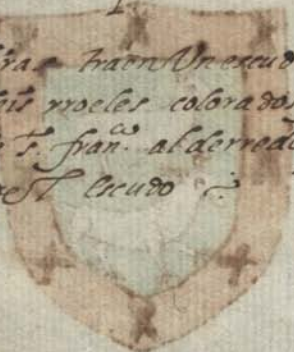 traen Un escud
rroeles colorados
s. fran.co alderredo
escudo